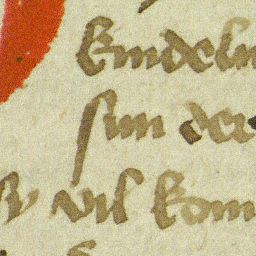 kindelin
sun der
vil kom